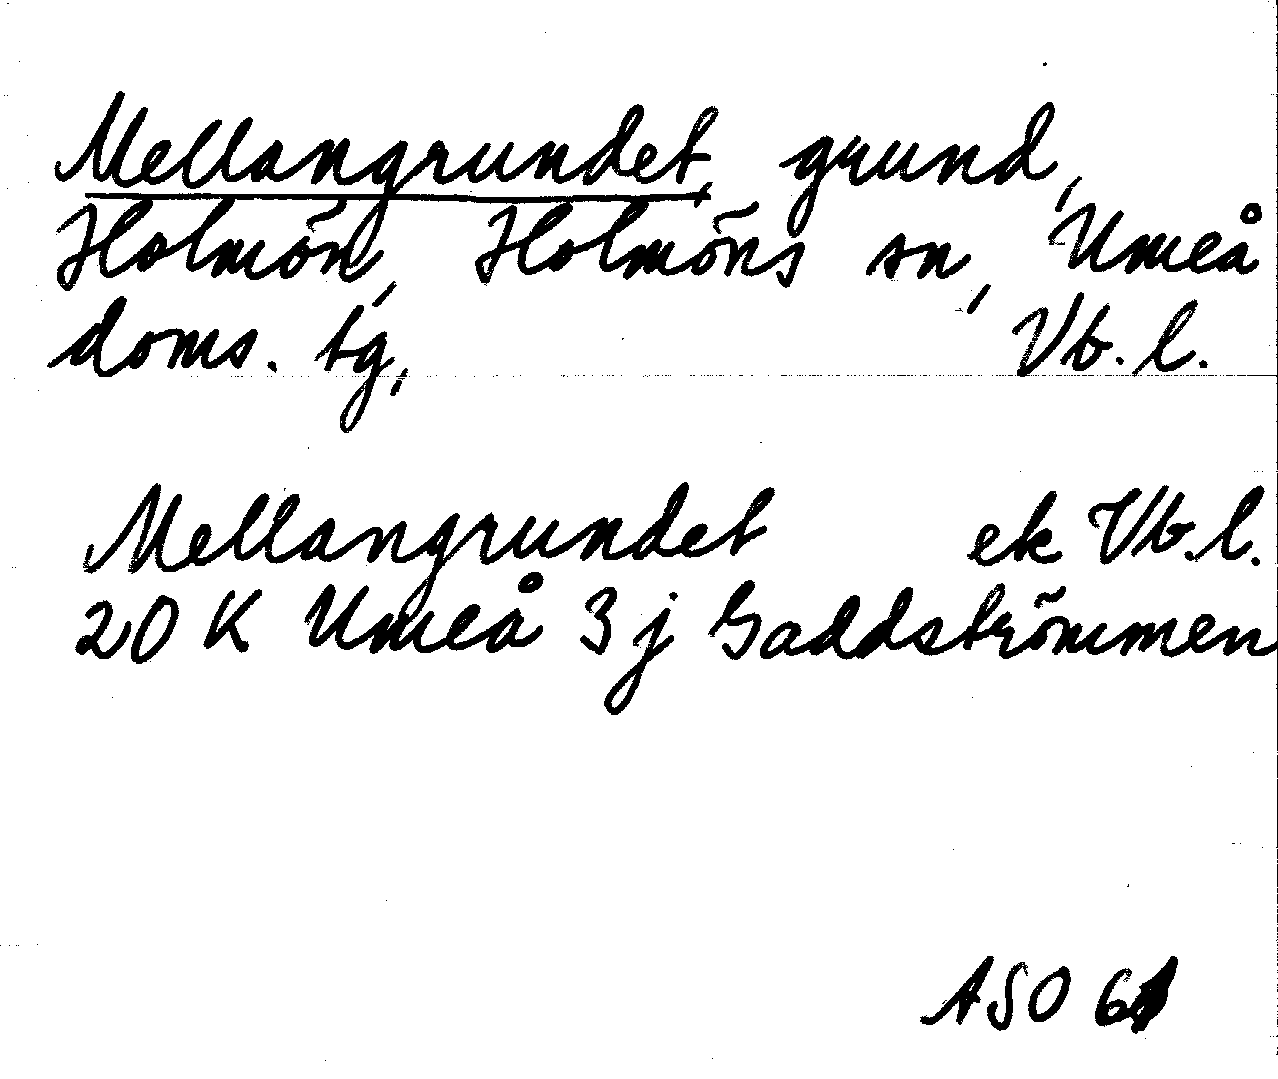 Mellangrundet, grund,
Holmön, Holmöns sn, Umeå
doms. tg, Vb. l.
Mellangrundet ek Vb. l.
20 K Umeå 3 j Gaddströmmen
ASO 61